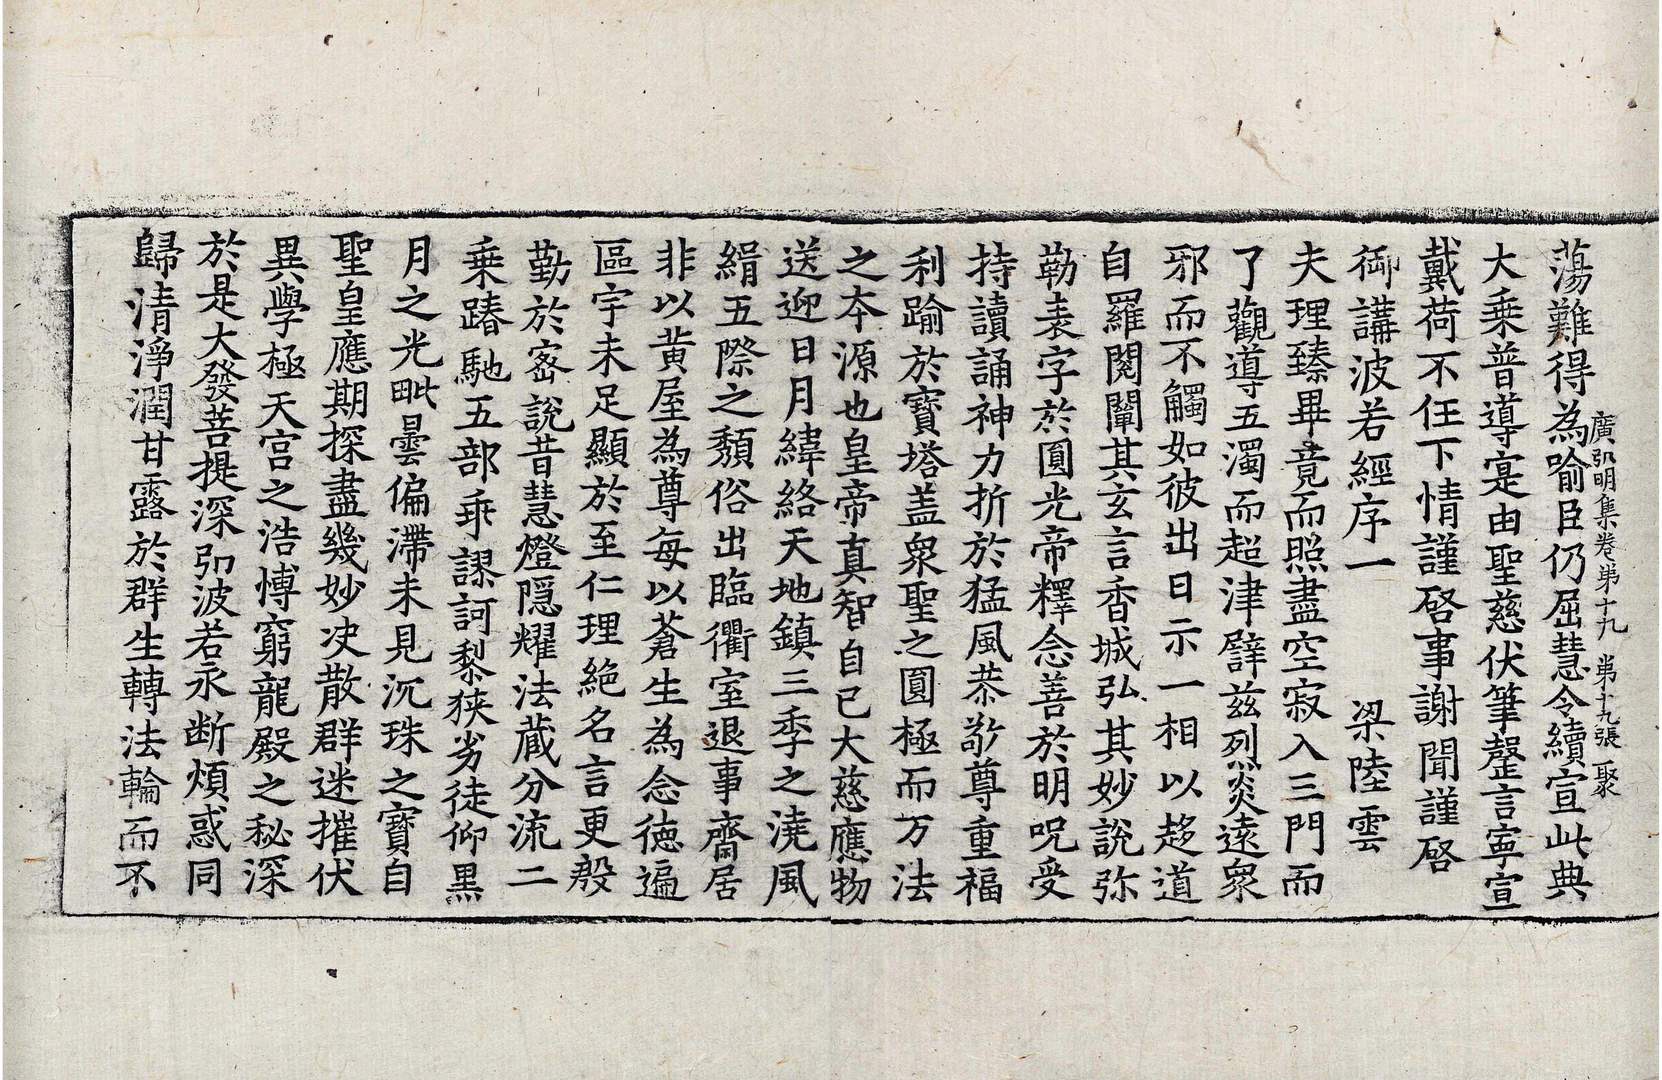 蕩難得為喻臣仍屈慧令續宣此典
廣弘明集卷第十九 第十九張 聚
大乗普導寔由聖慈伏筆罄言寧宣
戴荷不任下情謹啓事謝聞謹啓
御講波若經序一 梁陸雲
夫理臻畢竟而照盡空寂入三門而
了觀導五濁而超津譬兹烈炎遠衆
邪而不觸如彼出日示一相以趍道
自羅閲闡其玄言香城弘其妙說弥
勒表字於圓光帝釋念善於明呪受
持讀誦神力折於猛風恭敬尊重福
利踰於寶塔盖衆聖之圓極而万法
之本源也皇帝真智自己大慈應物
送迎日月緯絡天地鎮三季之澆風
緝五際之頽俗出臨衢室退事齋居
非以黄屋為尊每以蒼生為念德遍
區宇未足顯於至仁理絶名言更殷
勤於宻說昔慧燈隠耀法蔵分流二
乗踳馳五部乖謬訶黎狭劣徒仰黒
月之光毗曇偏滯未見沉珠之寳自
聖皇應期探盡幾妙决散群迷摧伏
異學極天宮之浩愽窮龍殿之秘深
於是大發菩提深弘波若永断煩惑同
歸清淨潤甘露於群生轉法輪而不